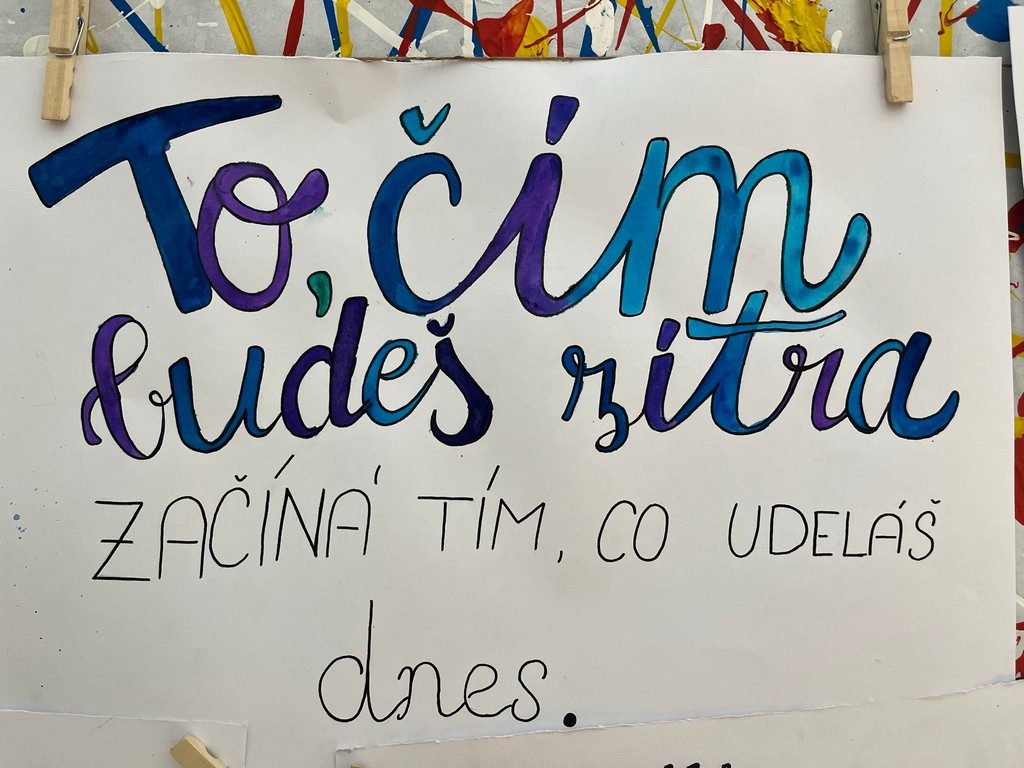 To, čím
budeš zitra
ZAČÍNÁ TÍM, CO UDELÁŠ
dnes.